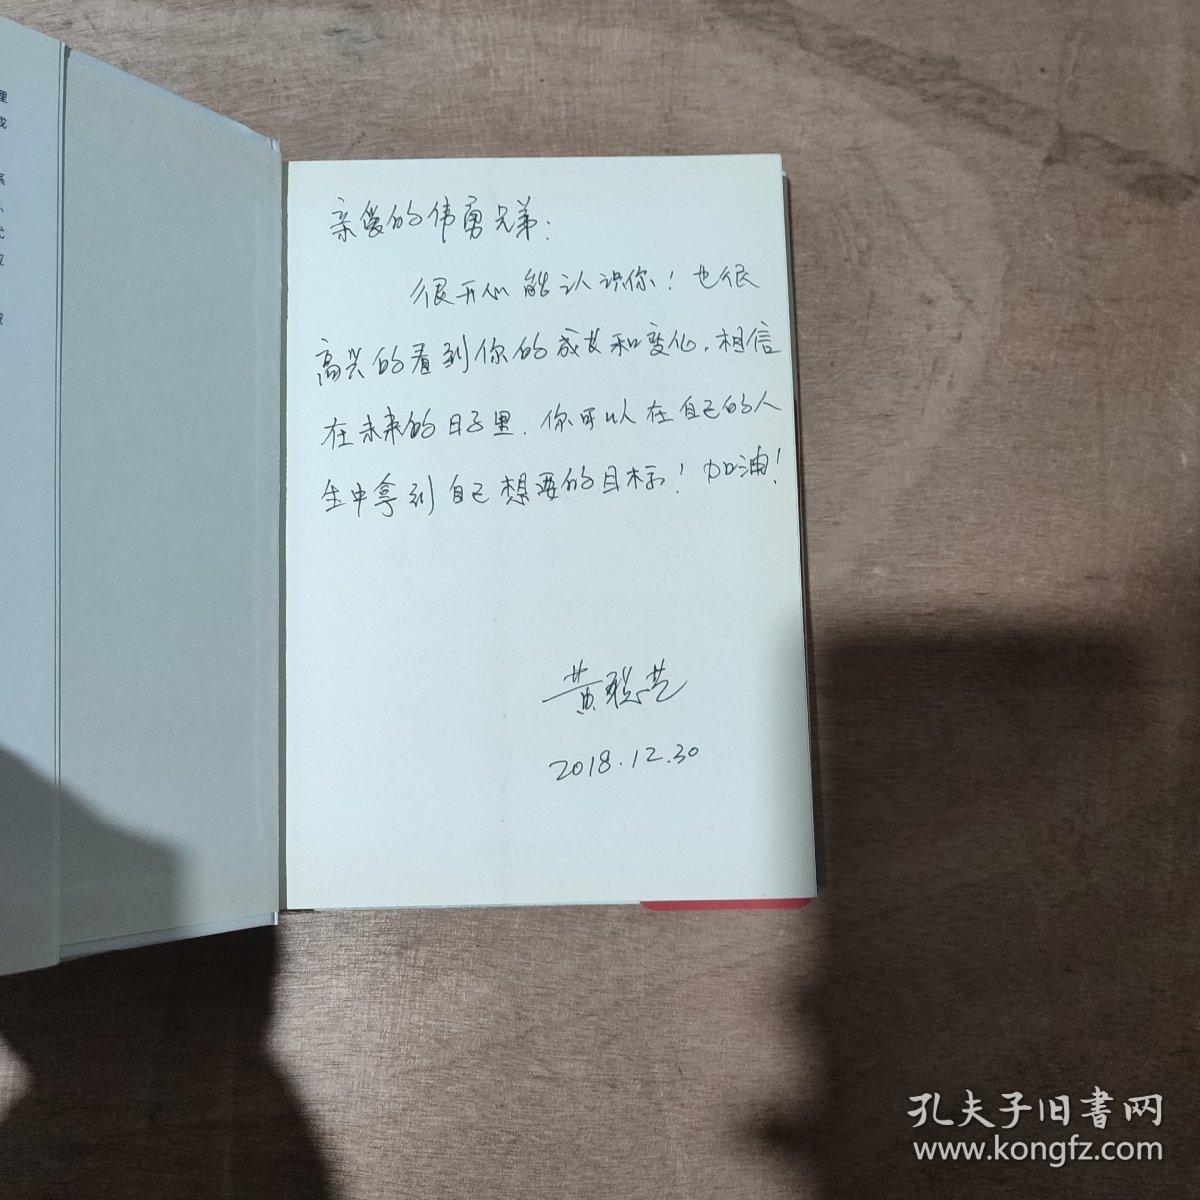 理
成
系
小
代
亲爱的伟勇兄弟：
很开心能认识你！也很
高兴的看到你的成长和变化，相信
在未来的日子里，你可以在自己的人
生中拿到自己想要的目标！加油！
黄聪艺
2018.12.30
孔夫子旧書网
www.kongfz.com